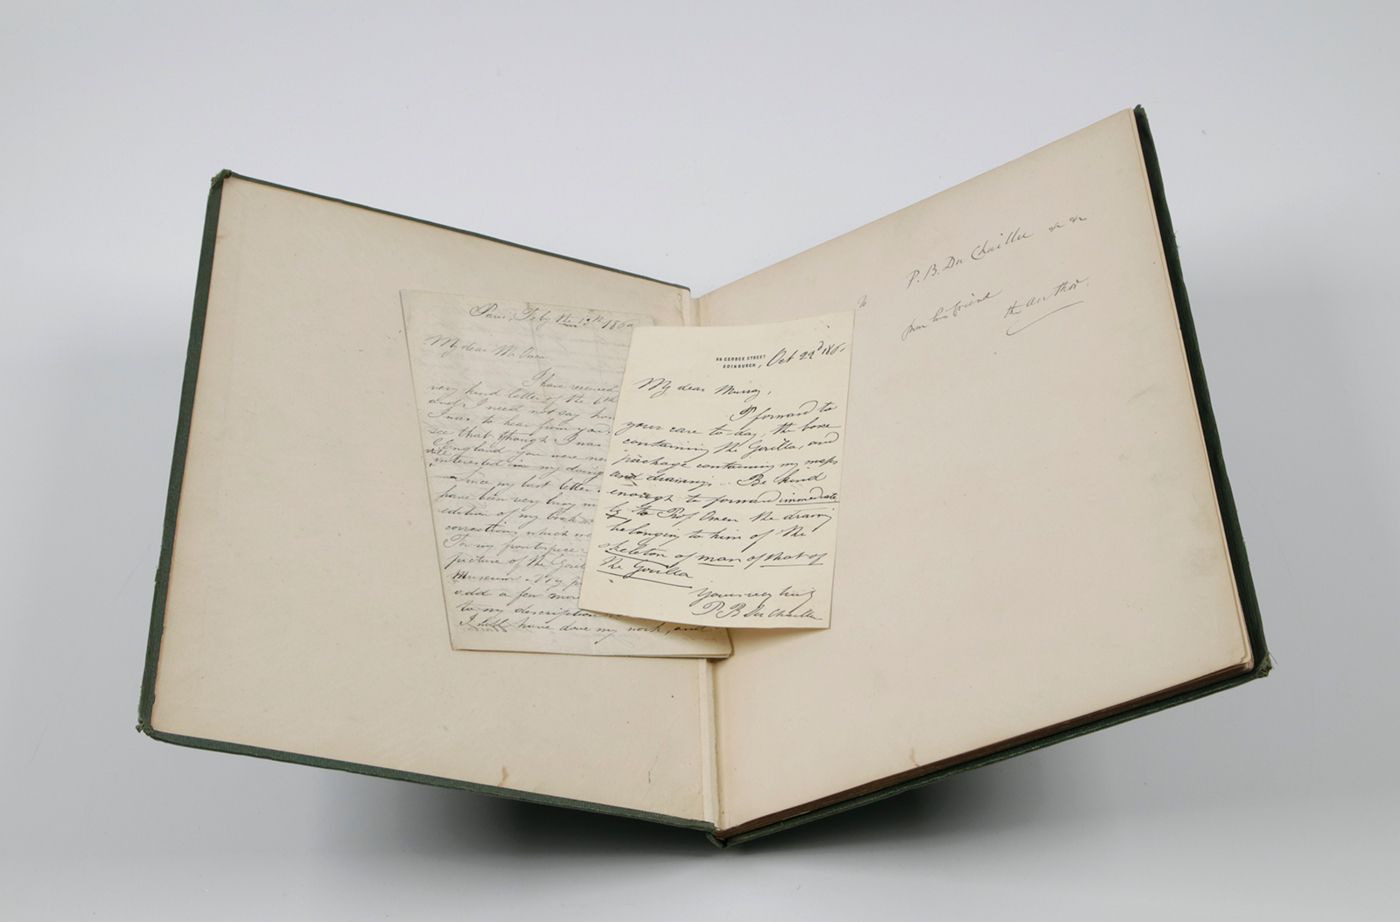 Paris, Feby the 1
My dear Mr. Owen
I have received
very kind letter of the 6th
and I need not say how
I was to hear from you.
see that though I was
England you were
interested in my doing
since my last letter
have been very busy
edition of my book
corrections which
To my frontispiece
picture of the Gorilla
Museum. My
add a few more
to my description
I still have done my work, and
96 GEORGE STREET
EDINBURGH, Oct 22d 186
My dear Murray,
I forward to
your care to-day, the boxe
containing the Gorilla, and
package containing my maps
and drawings. Be kind
enough to forward immediate
ly to Prof Owen the drawing
belonging to him of the
skeleton of man of that of
The Gorilla
Yours very truly
P B Du Chaillu
to P. B. Du Chaillu &c &c
from his friend
the author.